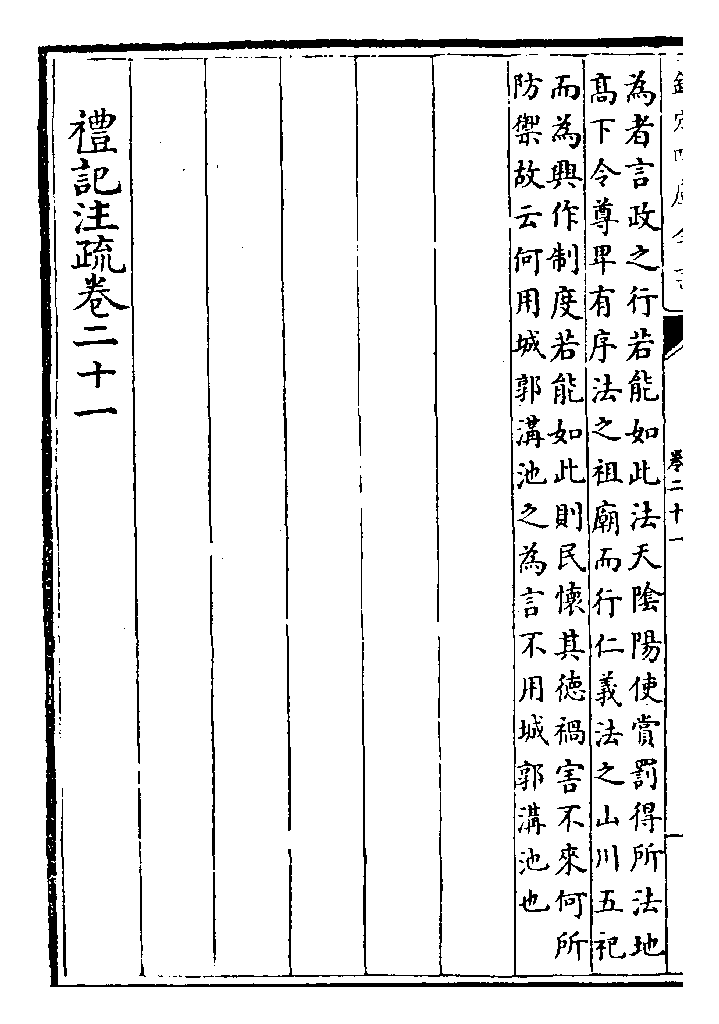 欽定四庫全書
卷二十一
為者言政之行若能如此法天陰陽使賞罰得所法地
髙下令尊卑有序法之祖廟而行仁義法之山川五祀
而為興作制度若能如此則民懷其德禍害不來何所
防禦故云何用城郭溝池之為言不用城郭溝池也
禮記注疏卷二十一